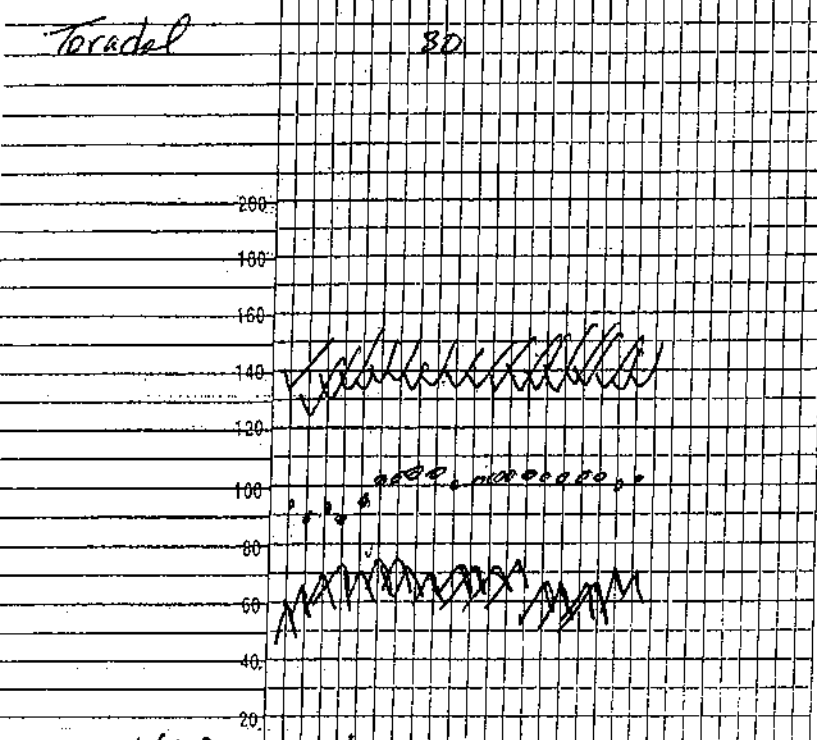 Toradol 30
200
180
160
140
120
100
80
60
40
20